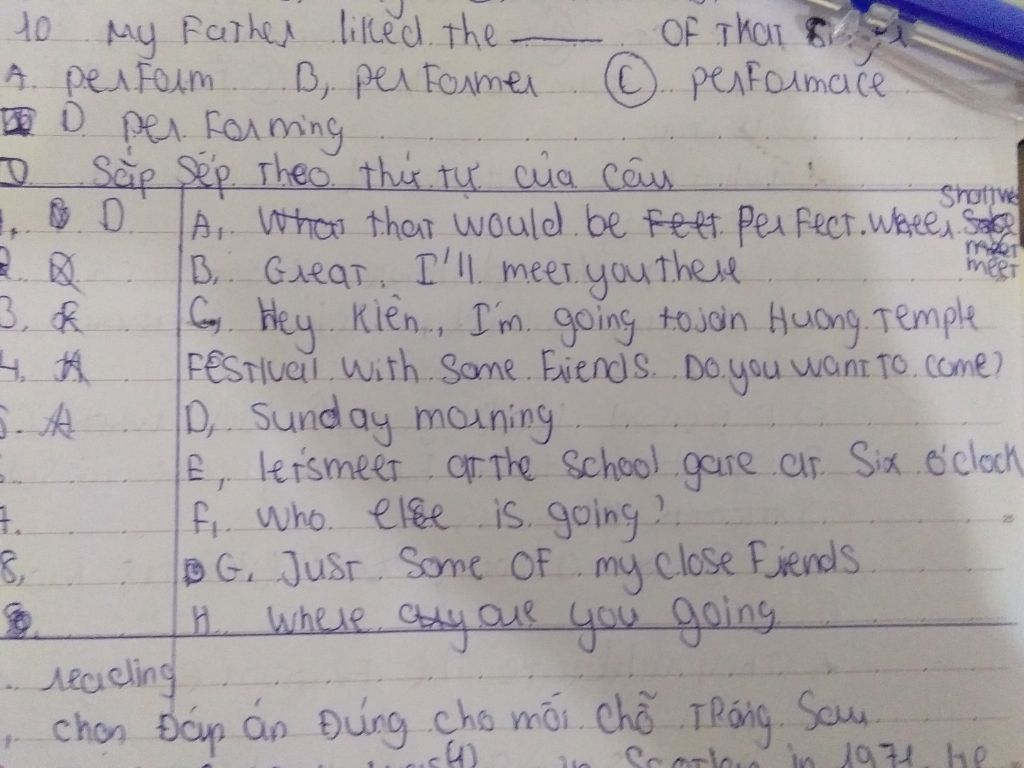 10 My Father liked the ____ OF That
A. perForm B, perFormer C perFormace
D per Forming
D Sắp Sếp Theo thứ tự của câu
1, D A, that would be PerFect. Where Should we meet
2 B, Great, I'll meet you There
3. C, Hey Kiên, I'm going to join Huong Temple
4. FESTIval With Some Friends. Do you want To come?
5. A D, Sunday morning
E, let's meet at The School gate at Six o'clock
7. F, Who else is going?
8, G, Just Some OF my close Friends
H Where are you going
reading
chọn Đáp án Đúng cho mỗi chỗ TRống Sau
(1) in Scotlan in 1971. he